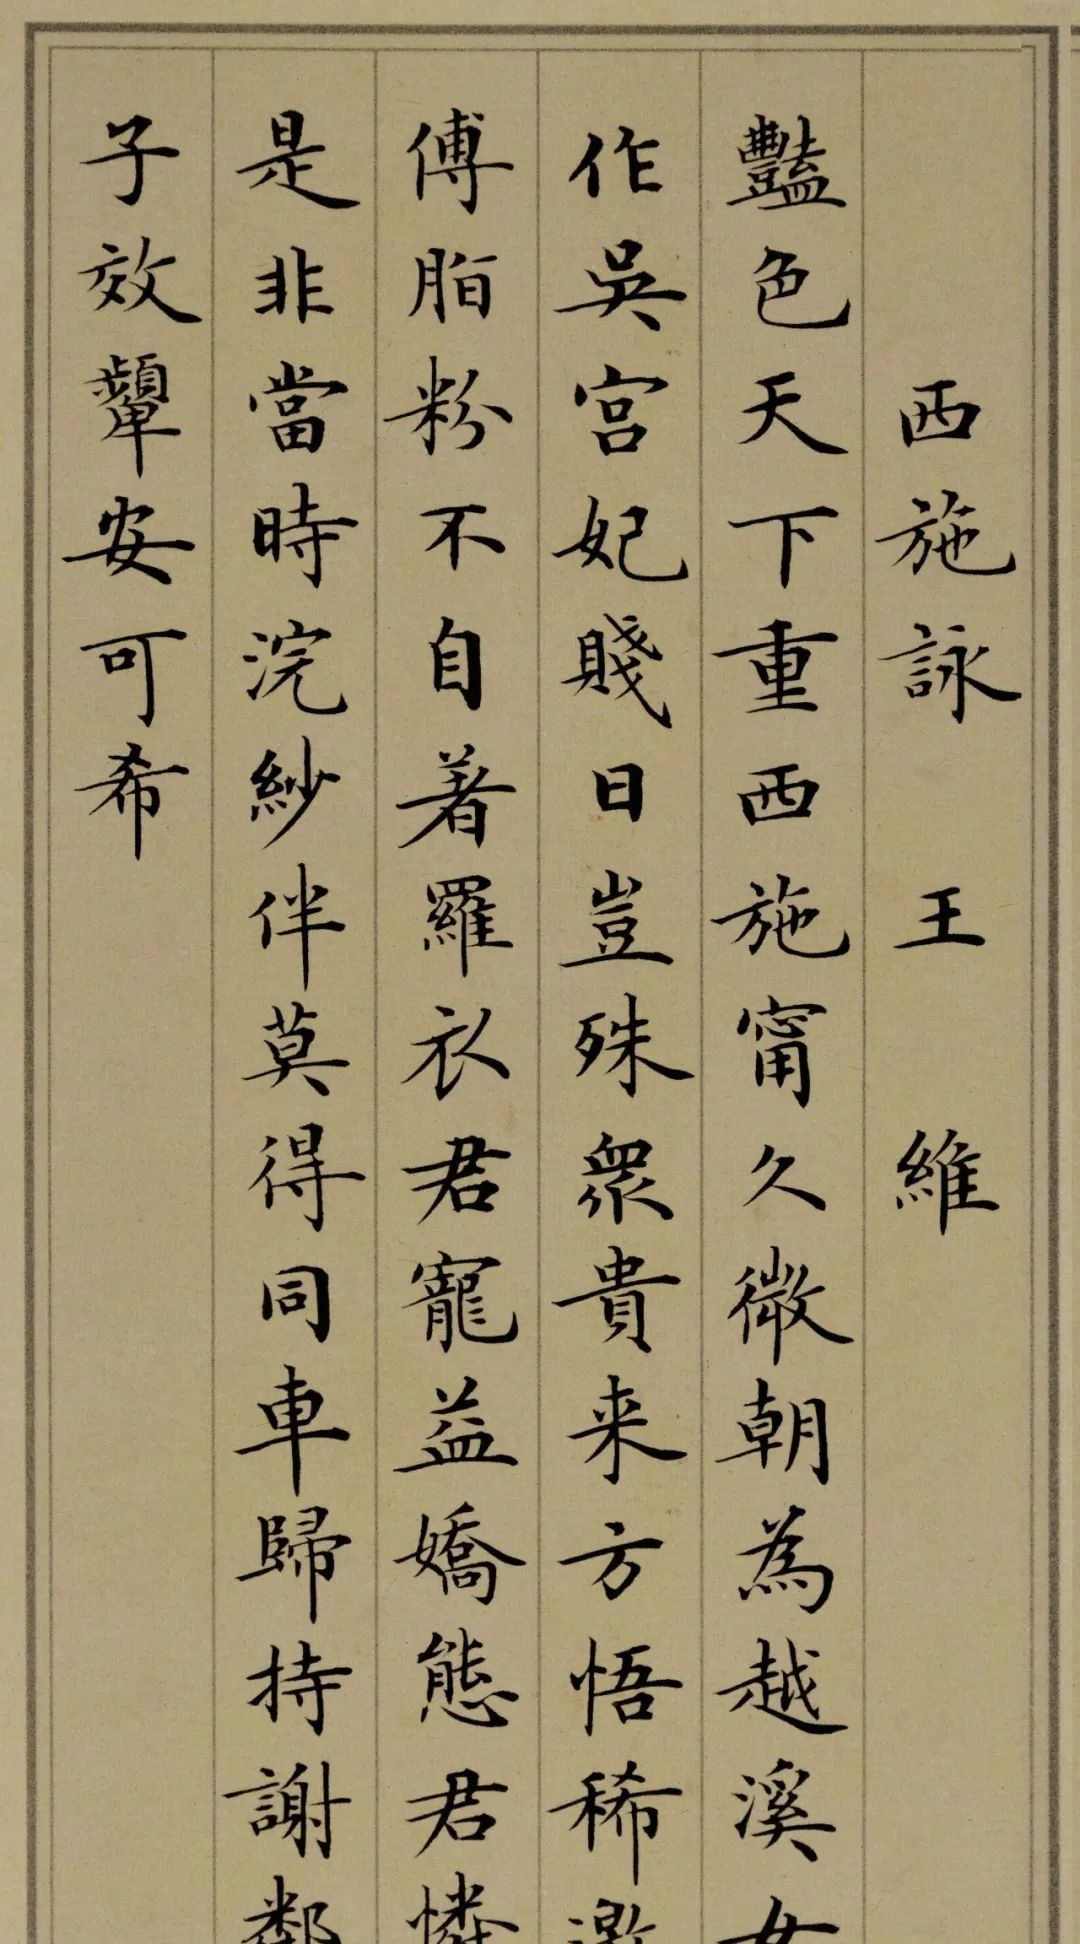 西施詠 王維
豔色天下重西施甯久微朝為越溪女
作吳宮妃賤日豈殊衆貴来方悟稀邀
傅脂粉不自著羅衣君寵益嬌態君憐
是非當時浣紗伴莫得同車歸持謝鄰
子效顰安可希